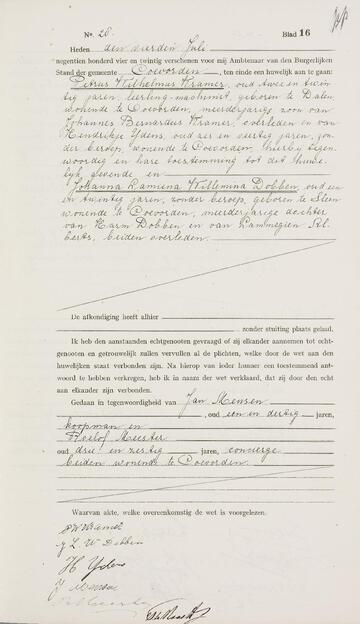 No. 28.
Blad 16
Heden den derden Juli
negentien honderd vier en twintig verschenen voor mij Ambtenaar van den Burgerlijken
Stand der gemeente Coevorden, ten einde een huwelijk aan te gaan:
Petrus Wilhelmus Kramer, oud twee en twin-
tig jaren, leerling-machinist, geboren te Dalen
wonende te Coevorden, meerderjarige zoon van
Johannes Bernardus Kramer, overleden en van
Hendrikje Ydens, oud zes en veertig jaren, zon-
der beroep, wonende te Coevorden, hierbij tegen-
woordig en hare toestemming tot dit huwe-
lijk gevende en
Johanna Ramina Willemina Dobben, oud een
en twintig jaren, zonder beroep, geboren te Sleen
wonende te Coevorden, meerderjarige dochter
van Harm Dobben en van Lammegien Al-
berts, beiden overleden.
De afkondiging heeft alhier
zonder stuiting plaats gehad.
Ik heb den aanstaanden echtgenooten gevraagd of zij elkander aannemen tot echt-
genooten en getrouwelijk zullen vervullen al de plichten, welke door de wet aan den
huwelijken staat verbonden zijn. Na hierop van ieder hunner een toestemmend ant-
woord te hebben verkregen, heb ik in naam der wet verklaard, dat zij door den echt
aan elkander zijn verbonden.
Gedaan in tegenwoordigheid van Jan Mensen
, oud een en dertig jaren,
koopman en
Roelof Meester
oud drie en zestig jaren, concierge
beiden wonende te Coevorden.
Waarvan akte, welke overeenkomstig de wet is voorgelezen.
P W Kramer
J. L. W Dobben
H Ydens
J Mensen